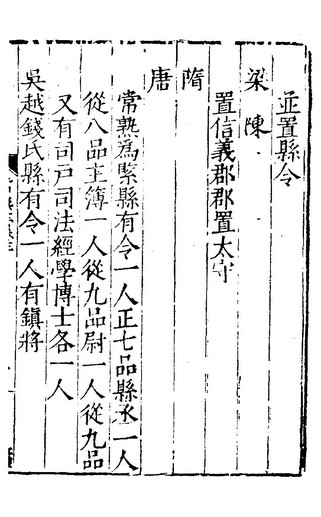 並置縣令
梁陳
置信義郡郡置太守
隋
唐
常熟為緊縣有令一人正七品縣丞一人
從八品主簿一人從九品尉一人從九品
又有司戶司法經學博士各一人
吳越錢氏縣有令一人有鎮將